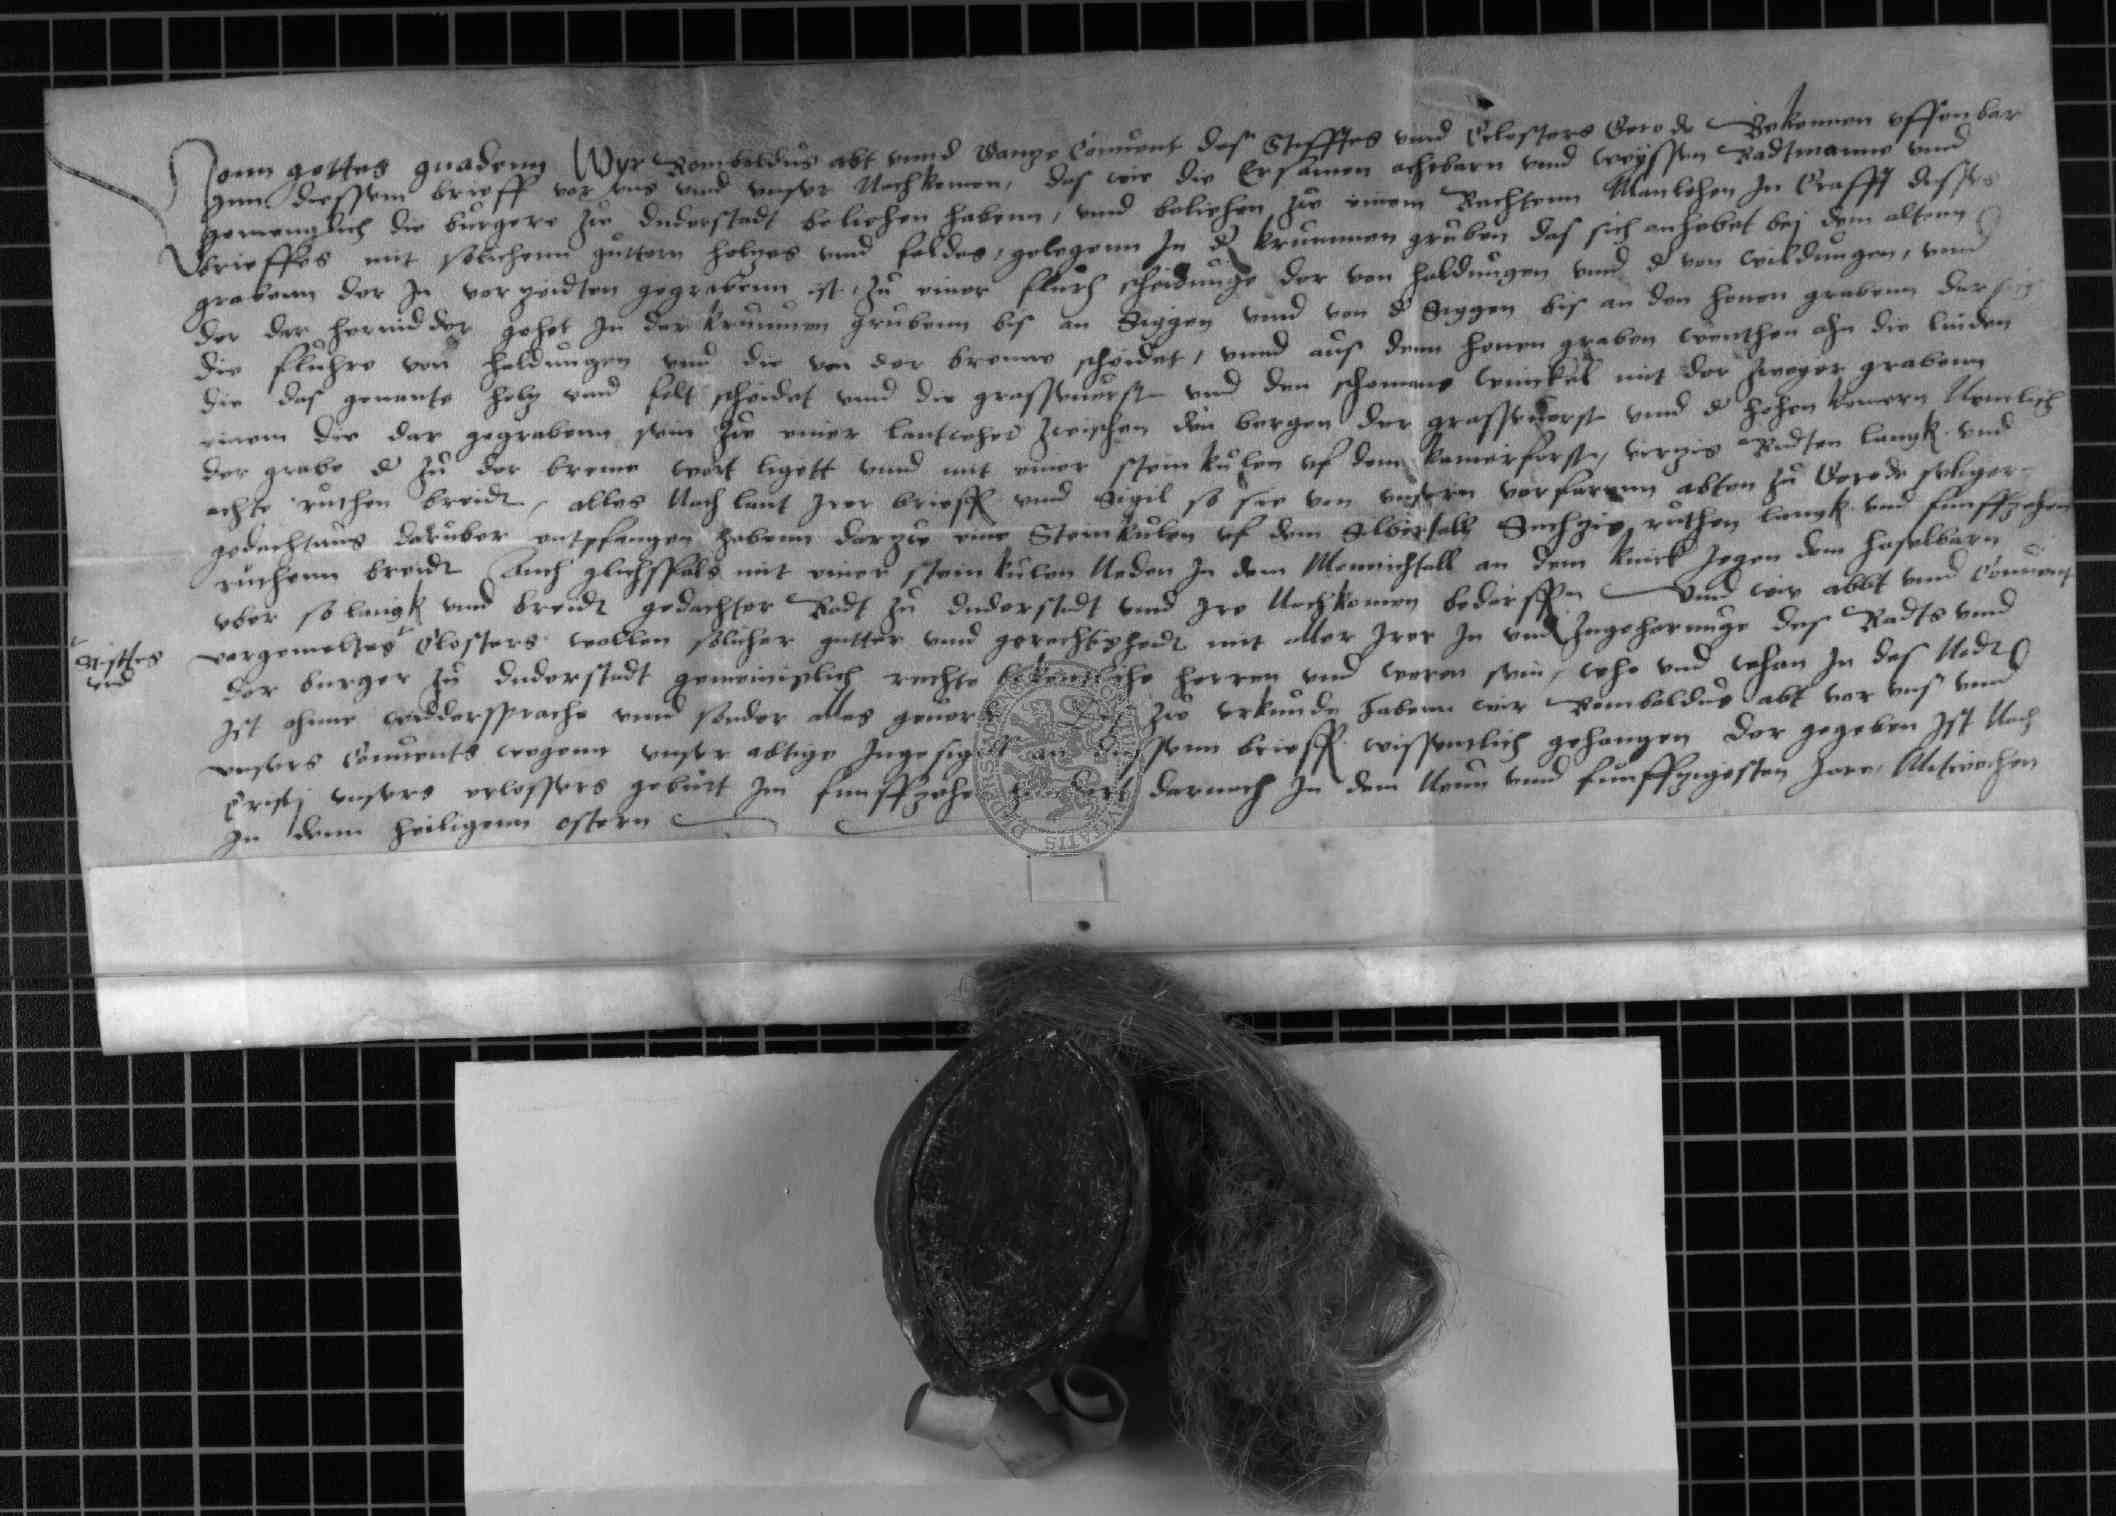 Vonn gottes gnadenn Wyr Romboldus abt vnnd Gantze Conuent des Stifftes vnnd Closters Gerode Bekennen offenbar
Inn diessem brieff vor vns vnd vnser Nachkomen, das wir die Ersamen achtbarn vnd weyssen Radtmanne vnd
gemeinglich die burgere zw duderstadt beliehen habenn, vnnd beliehen zw einem Rechtenn Manlehen In Crafft disses
brieffes mit solichenn guttern holtzes vnnd feldes, gelegenn In d krummen gruben das sich anhebet bej dem altenn
grabenn der In vorzeidten gegrabenn ist, zu einer flurh scheidunge der von haldungen vnnd d von wildungen, vnnd
der dar hernidder gehet In der krummen grubenn bis an Siggen vnnd von d Siggen bis an den honen grabenn der
die fluhre von haldungen vnnd die von der breme scheidet, vnnd aus denn honen graben wenthen ahn die linden
die das genante holtz vnnd felt scheidet vnnd die grasseuorst vnd den schemans winckel mit der zweyer grabenn
einem die dar gegrabenn sein zw einer lantwehr zwischen den bergen der grasseuorst vnnd d hohen Nemlich
der grabe d zu der breme wert ligett vnnd mit einer steinkulen vf dem kamerforste, virtzis Rudten langk vnd
achte ruthen breidt, alles Nach laut Irer brieff vnd Sigil so sie von vnsern vorfarenn abten zu Gerode seliger
gedechtnus daruber entpfangen habenn dartzw eine Steinkulen vf dem Sechzig ruthen langk vnd funfftzehen
ruthenn breidt Auch glichsfals mit einer steinkulen Neden In dem an dem knick Jegen dem haselbarn
vber so langk vnnd breidt gedachter Radt zu duderstadt vnnd Ire Nachkomen bedorffen Vnnd wir abbt vnnd Conuent
Stifftes vnd
vorgemeltes Closters wollen solicher gutter vnnd gerechtigkedt mit aller Irer In vnd Zugehorunge des Radts vnnd
der burger zu duderstadt gemeiniglich rechte bekentliche herren vnd weren sein, wehe vnd wehan In des Nodt
Ist ahnne widdersprache vnnd sonder alles geuerde zw vrkunde habenn wir Romboldus abt vor vns vnnd
vnsers Conuents wegenn vnser abtige Ingesigell an diessenn brieff wissentlich gehangen Der gegeben Ist Nach
Cristj vnsers erlossers geburt Im funfftzehen hundert darnach In dem Neun vnnd funfftzigesten Jare, Mitwochen
In denn heiligenn ostern